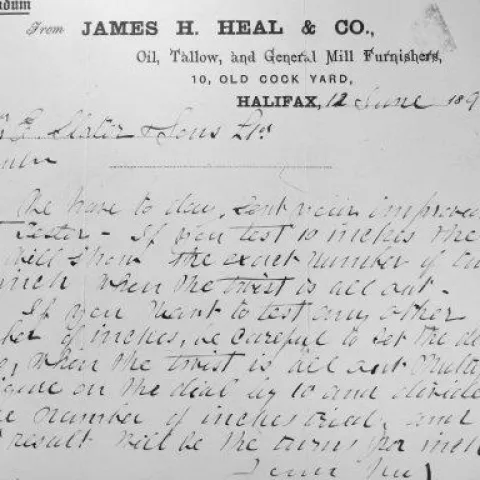 dum
From JAMES H. HEAL & CO.,
Oil, Tallow, and General Mill Furnishers,
10, OLD COCK YARD,
HALIFAX, 12 June 189
& Sons
We have to day, sent your improved
Tester - If you test 10 inches the
will shew the exact number of
inch when the twist is all out -
If you want to test any other
ber of inches, be careful to set the
when the twist is all out
igure on the dial by 10 and divide
e number of inches tried, and
result will be the turns per inch